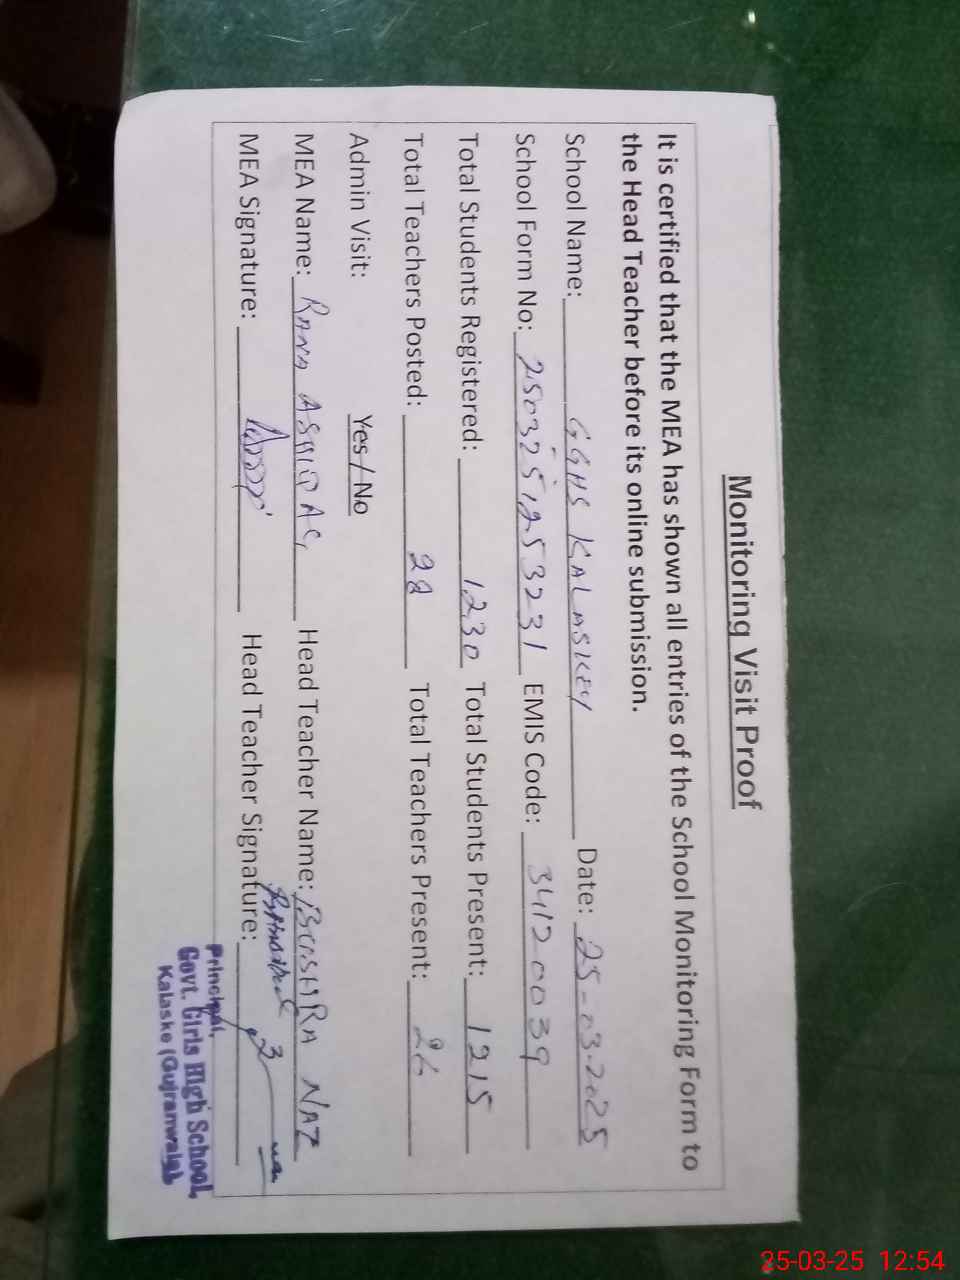 Monitoring Visit Proof
It is certified that the MEA has shown all entries of the School Monitoring Form to
the Head Teacher before its online submission.
School Name: GGHS KALASKEY Date: 25-03-2025
School Form No: 2503251253231 EMIS Code: 34120039
Total Students Registered: 1230 Total Students Present: 1215
Total Teachers Posted: 28 Total Teachers Present: 26
Admin Visit: Yes / No
MEA Name: RANA ASHIQ Head Teacher Name: BUSHRA NAZ
MEA Signature: Head Teacher Signature:
Principal,
Govt. Girls High School,
Kalaske (Gujranwala)
25-03-25 12:54